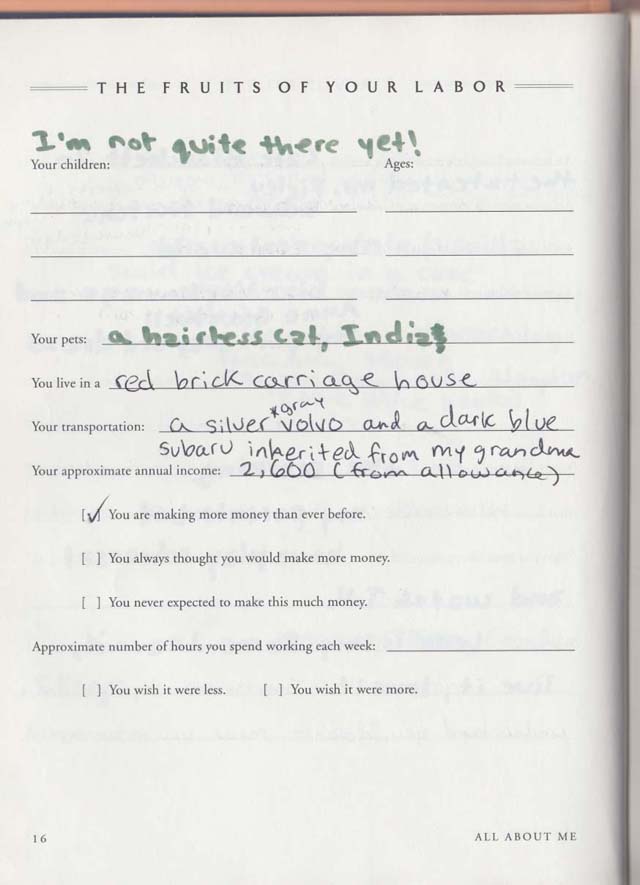 THE FRUITS OF YOUR LABOR
I'm not quite there yet!
Your children: Ages:
Your pets: a hairless cat, India
You live in a red brick carriage house
*gray
Your transportation: a silver volvo and a dark blue
subaru inherited from my grandma
Your approximate annual income: 2,600 (from allowance)
[✓] You are making more money than ever before.
[ ] You always thought you would make more money.
[ ] You never expected to make this much money.
Approximate number of hours you spend working each week:
[ ] You wish it were less. [ ] You wish it were more.
16 ALL ABOUT ME